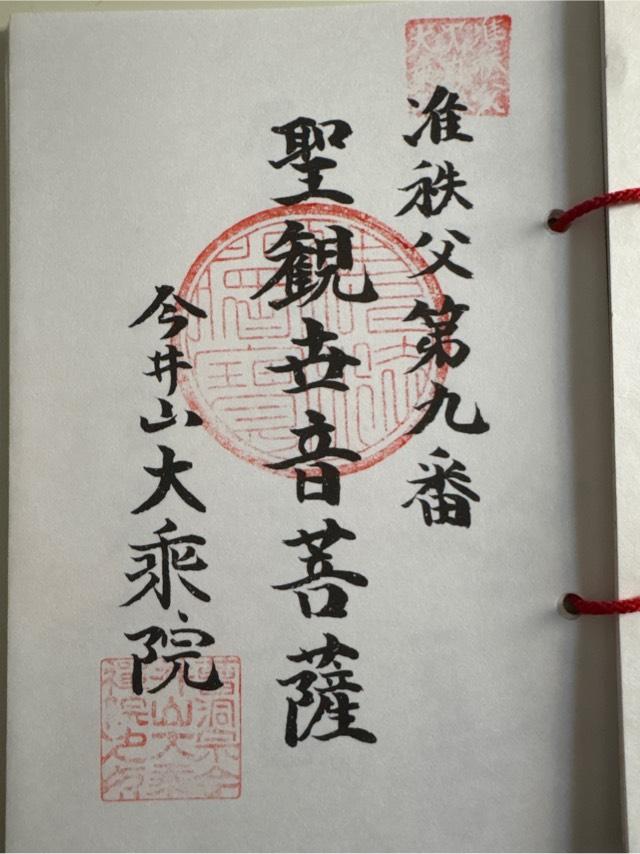 准秩父第九番
聖観世音菩薩
今井山大乘院